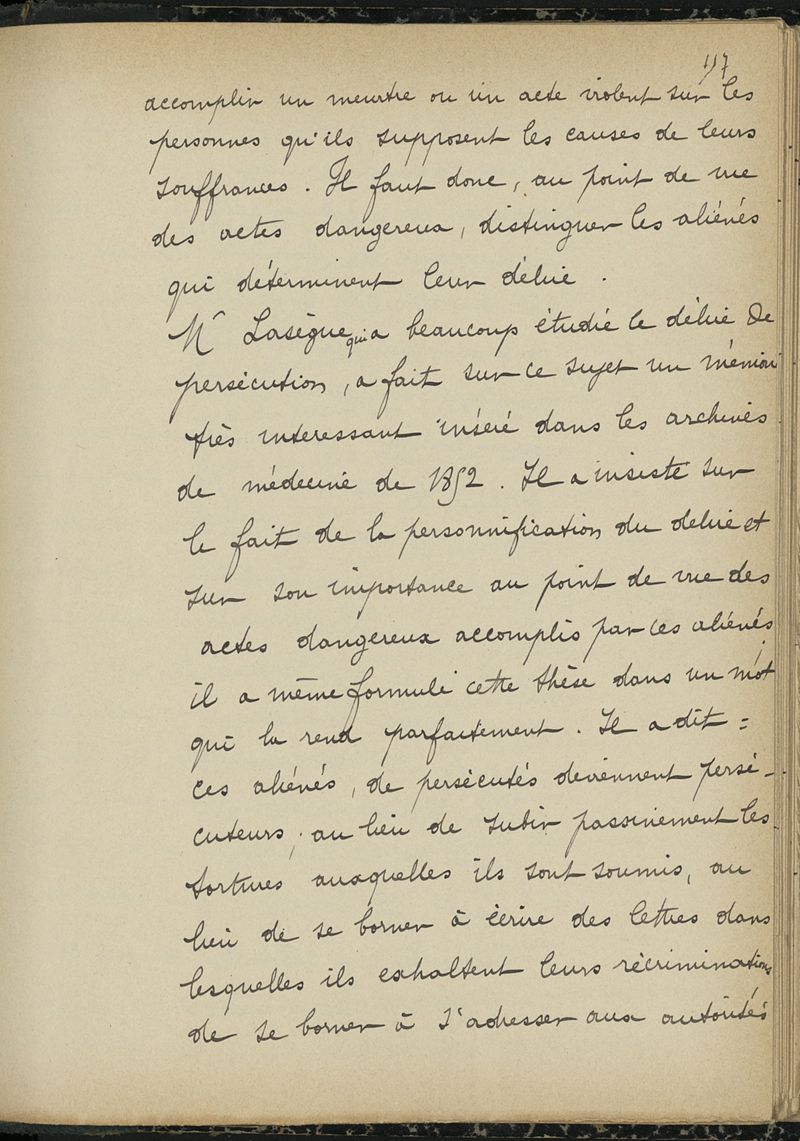 117
accomplir un meurtre ou un acte violent sur les
personnes qu'ils supposent les causes de leurs
souffrances. Il faut donc, au point de vue
des actes dangereux, distinguer les aliénés
qui déterminent leur délire.
Mr Lasègue qui a beaucoup étudié le délire de
persécution, a fait sur ce sujet un mémoire
très interessant inséré dans les archives
de médecine de 1852. Il a insisté sur
le fait de la personnification du delire et
sur son importance au point de vue des
actes dangereux accomplis par ces aliénés,
il a même formulé cette thèse dans un mot
qui la rend parfaitement. Il a dit =
ces aliénés, de persécutés deviennent persé-
cuteurs; au lieu de subir passivement les
tortures auxquelles ils sont soumis, au
lieu de se borner à écrire des lettres dans
lesquelles ils exhaltent leurs récriminations
de se borner à s'adresser aux autorités